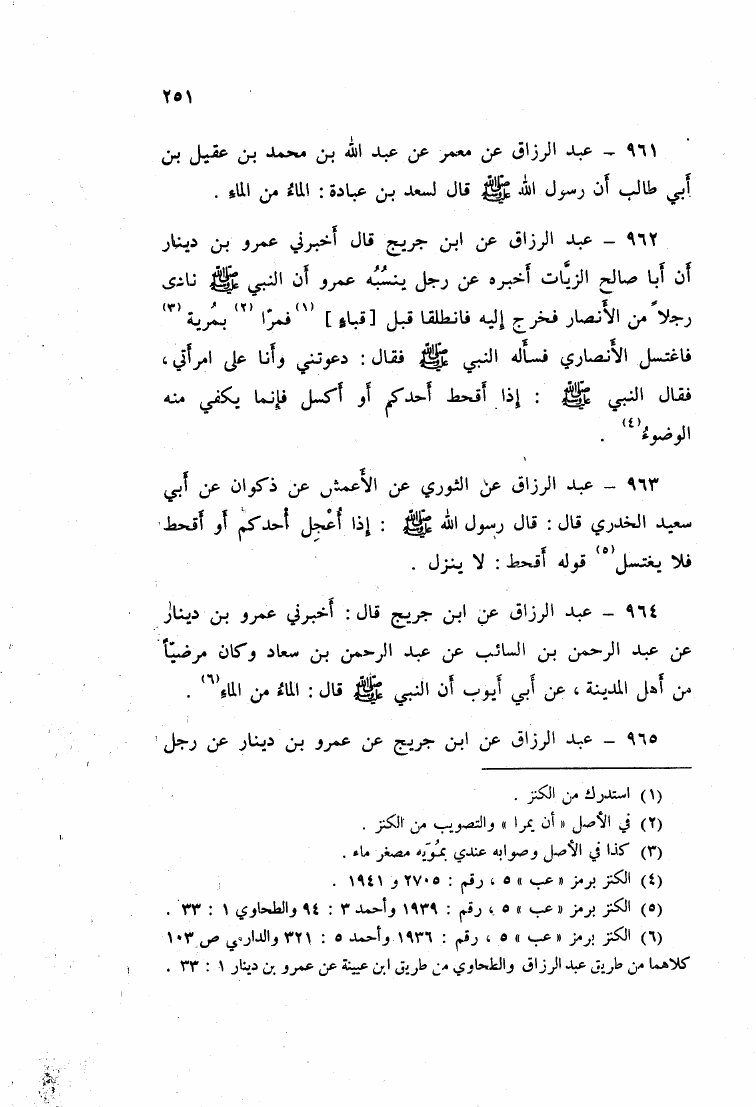 ٢٥١
٩٦١ – عبد الرزاق عن معمر عن عبد الله بن محمد بن عقيل بن
أبي طالب أن رسول الله ﷺ قال لسعد بن عبادة : الماءُ من الماءِ .
٩٦٢ – عبد الرزاق عن ابن جريج قال أخبرني عمرو بن دينار
أن أبا صالح الزيَّات أخبره عن رجل ينسُبُه عمرو أن النبي ﷺ نادى
رجلاً من الأنصار فخرج إليه فانطلقا قبل [ قباءٍ ] (١) فمرّا (٢) بمُرية (٣)
فاغتسل الأنصاري فسأله النبي ﷺ فقال : دعوتني وأنا على امرأتي ،
فقال النبي ﷺ : إذا أقحط أحدكم أو أكسل فإنما يكفي منه
الوضوءُ (٤) .
٩٦٣ – عبد الرزاق عن الثوري عن الأعمش عن ذكوان عن أبي
سعيد الخدري قال : قال رسول الله ﷺ : إذا أُعْجِل أحدكم أو أقحط
فلا يغتسل (٥) قوله أقحط : لا ينزل .
٩٦٤ – عبد الرزاق عن ابن جريج قال : أخبرني عمرو بن دينار
عن عبد الرحمن بن السائب عن عبد الرحمن بن سعاد وكان مرضيّاً
من أهل المدينة ، عن أبي أيوب أن النبي ﷺ قال : الماءُ من الماءِ (٦) .
٩٦٥ – عبد الرزاق عن ابن جريج عن عمرو بن دينار عن رجل
(١) استدرك من الكنز .
(٢) في الأصل « أن يمرا » والتصويب من الكنز .
(٣) كذا في الأصل وصوابه عندي بمُوَيه مصغر ماء .
(٤) الكنز برمز « عب » ٥ ، رقم : ٢٧٠٥ و ١٩٤١ .
(٥) الكنز برمز « عب » ٥ ، رقم : ١٩٣٩ وأحمد ٣ : ٩٤ والطحاوي ١ : ٣٣ .
(٦) الكنز برمز « عب » ٥ ، رقم : ١٩٣٦ وأحمد ٥ : ٣٢١ والدارمي ص ١٠٣
كلاهما من طريق عبد الرزاق والطحاوي من طريق ابن عيينة عن عمرو بن دينار ١ : ٣٣ .